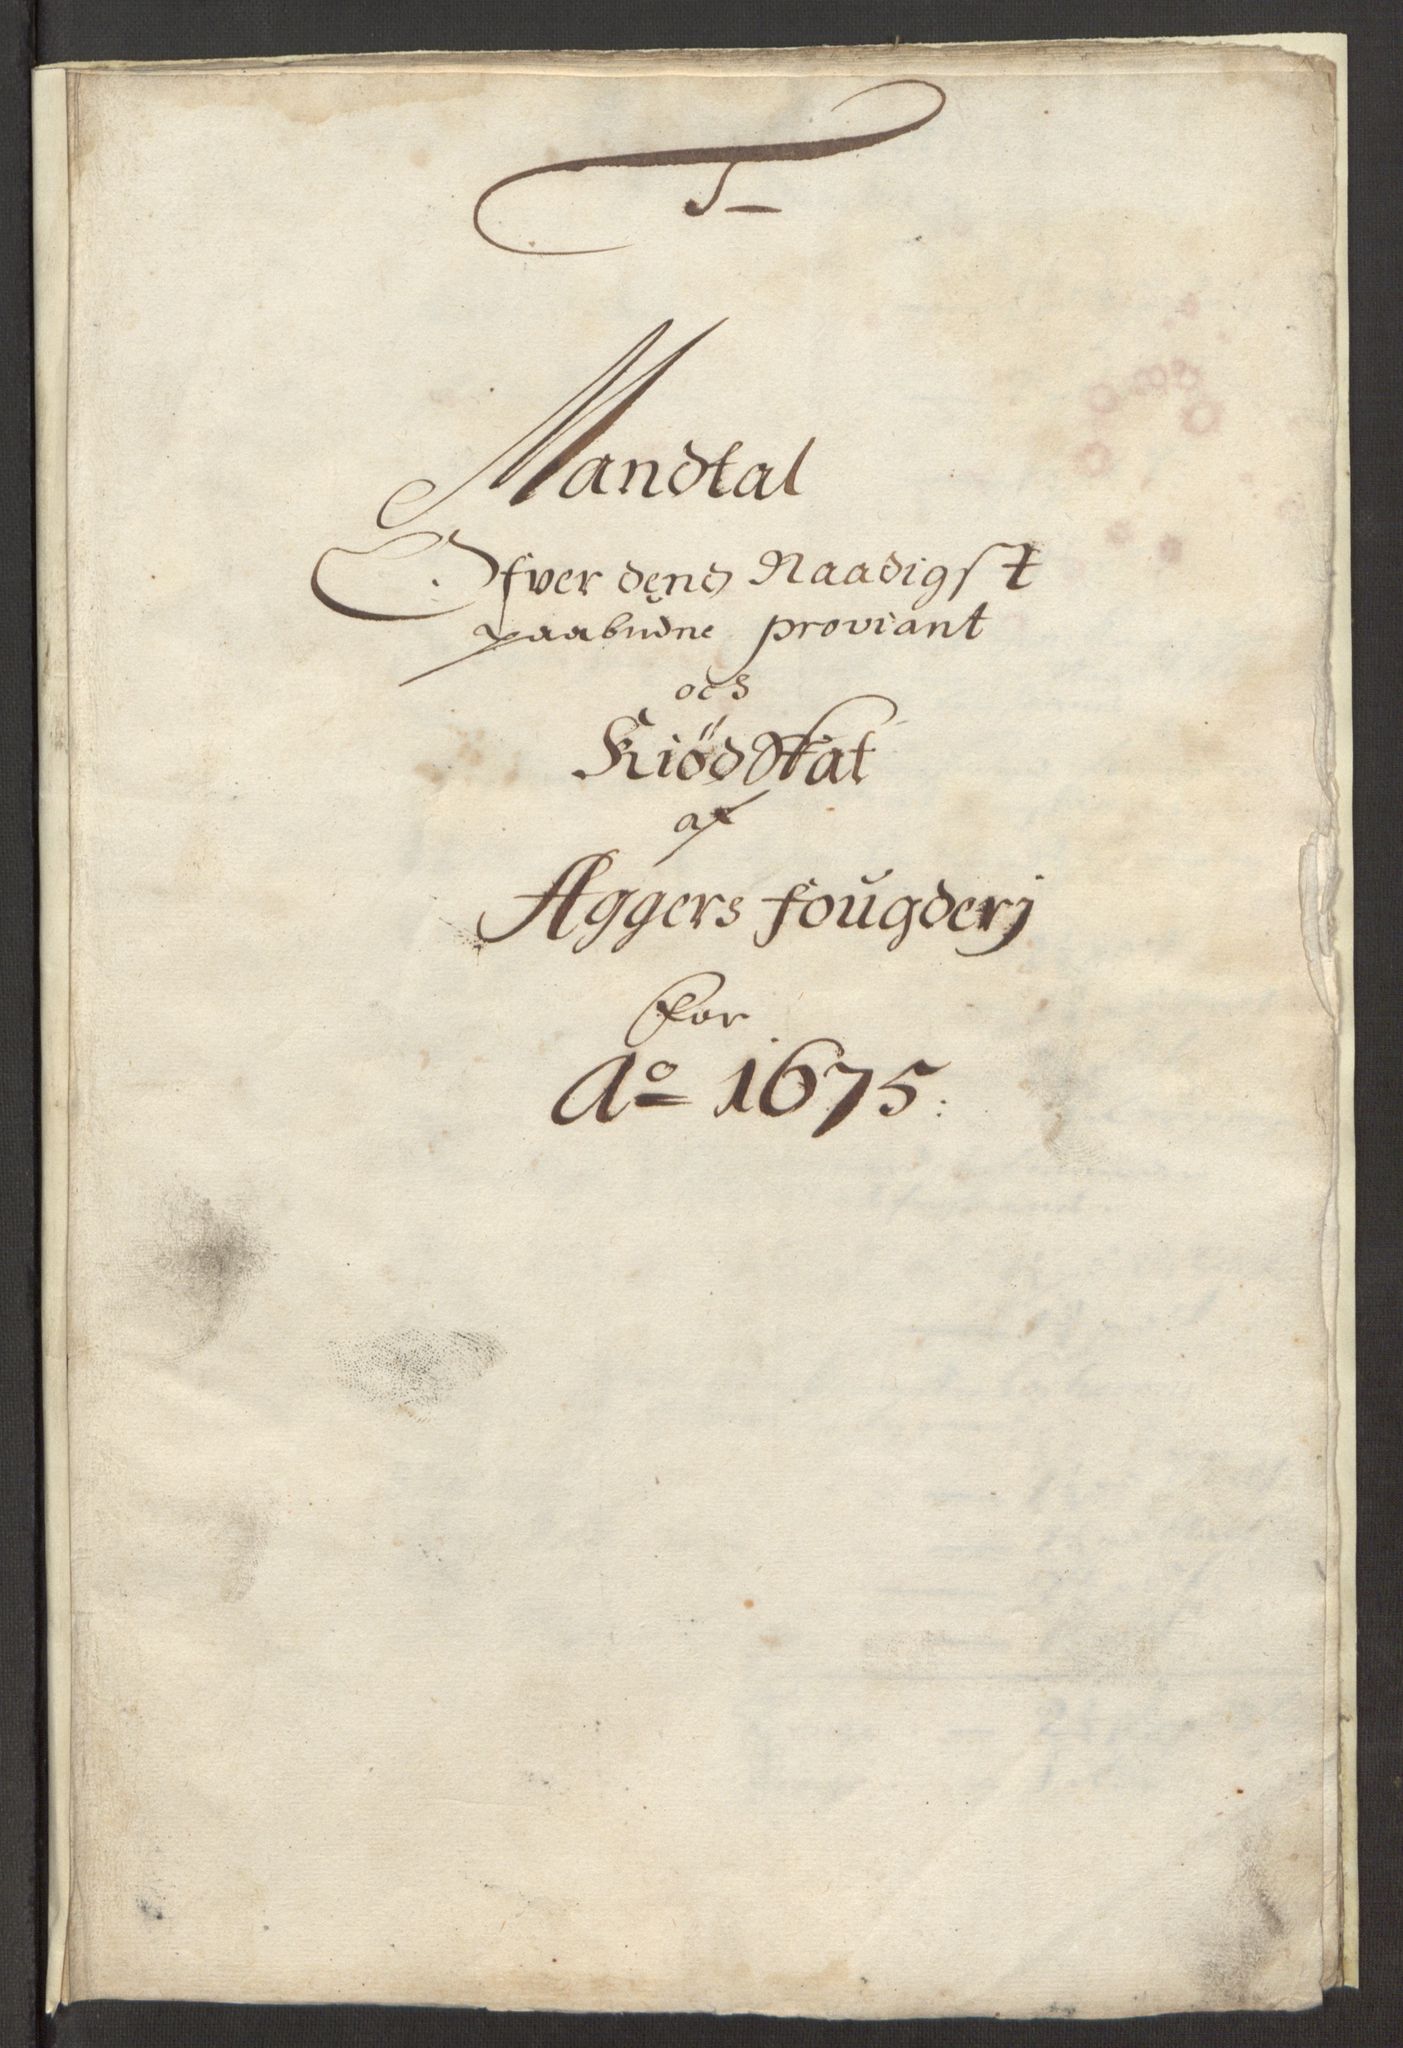 J
Mandtal
Ofver dend Naadigst
paabudne proviant
och
Kiöd Skat
af
Aggers fougderj
for
Aº 1675.